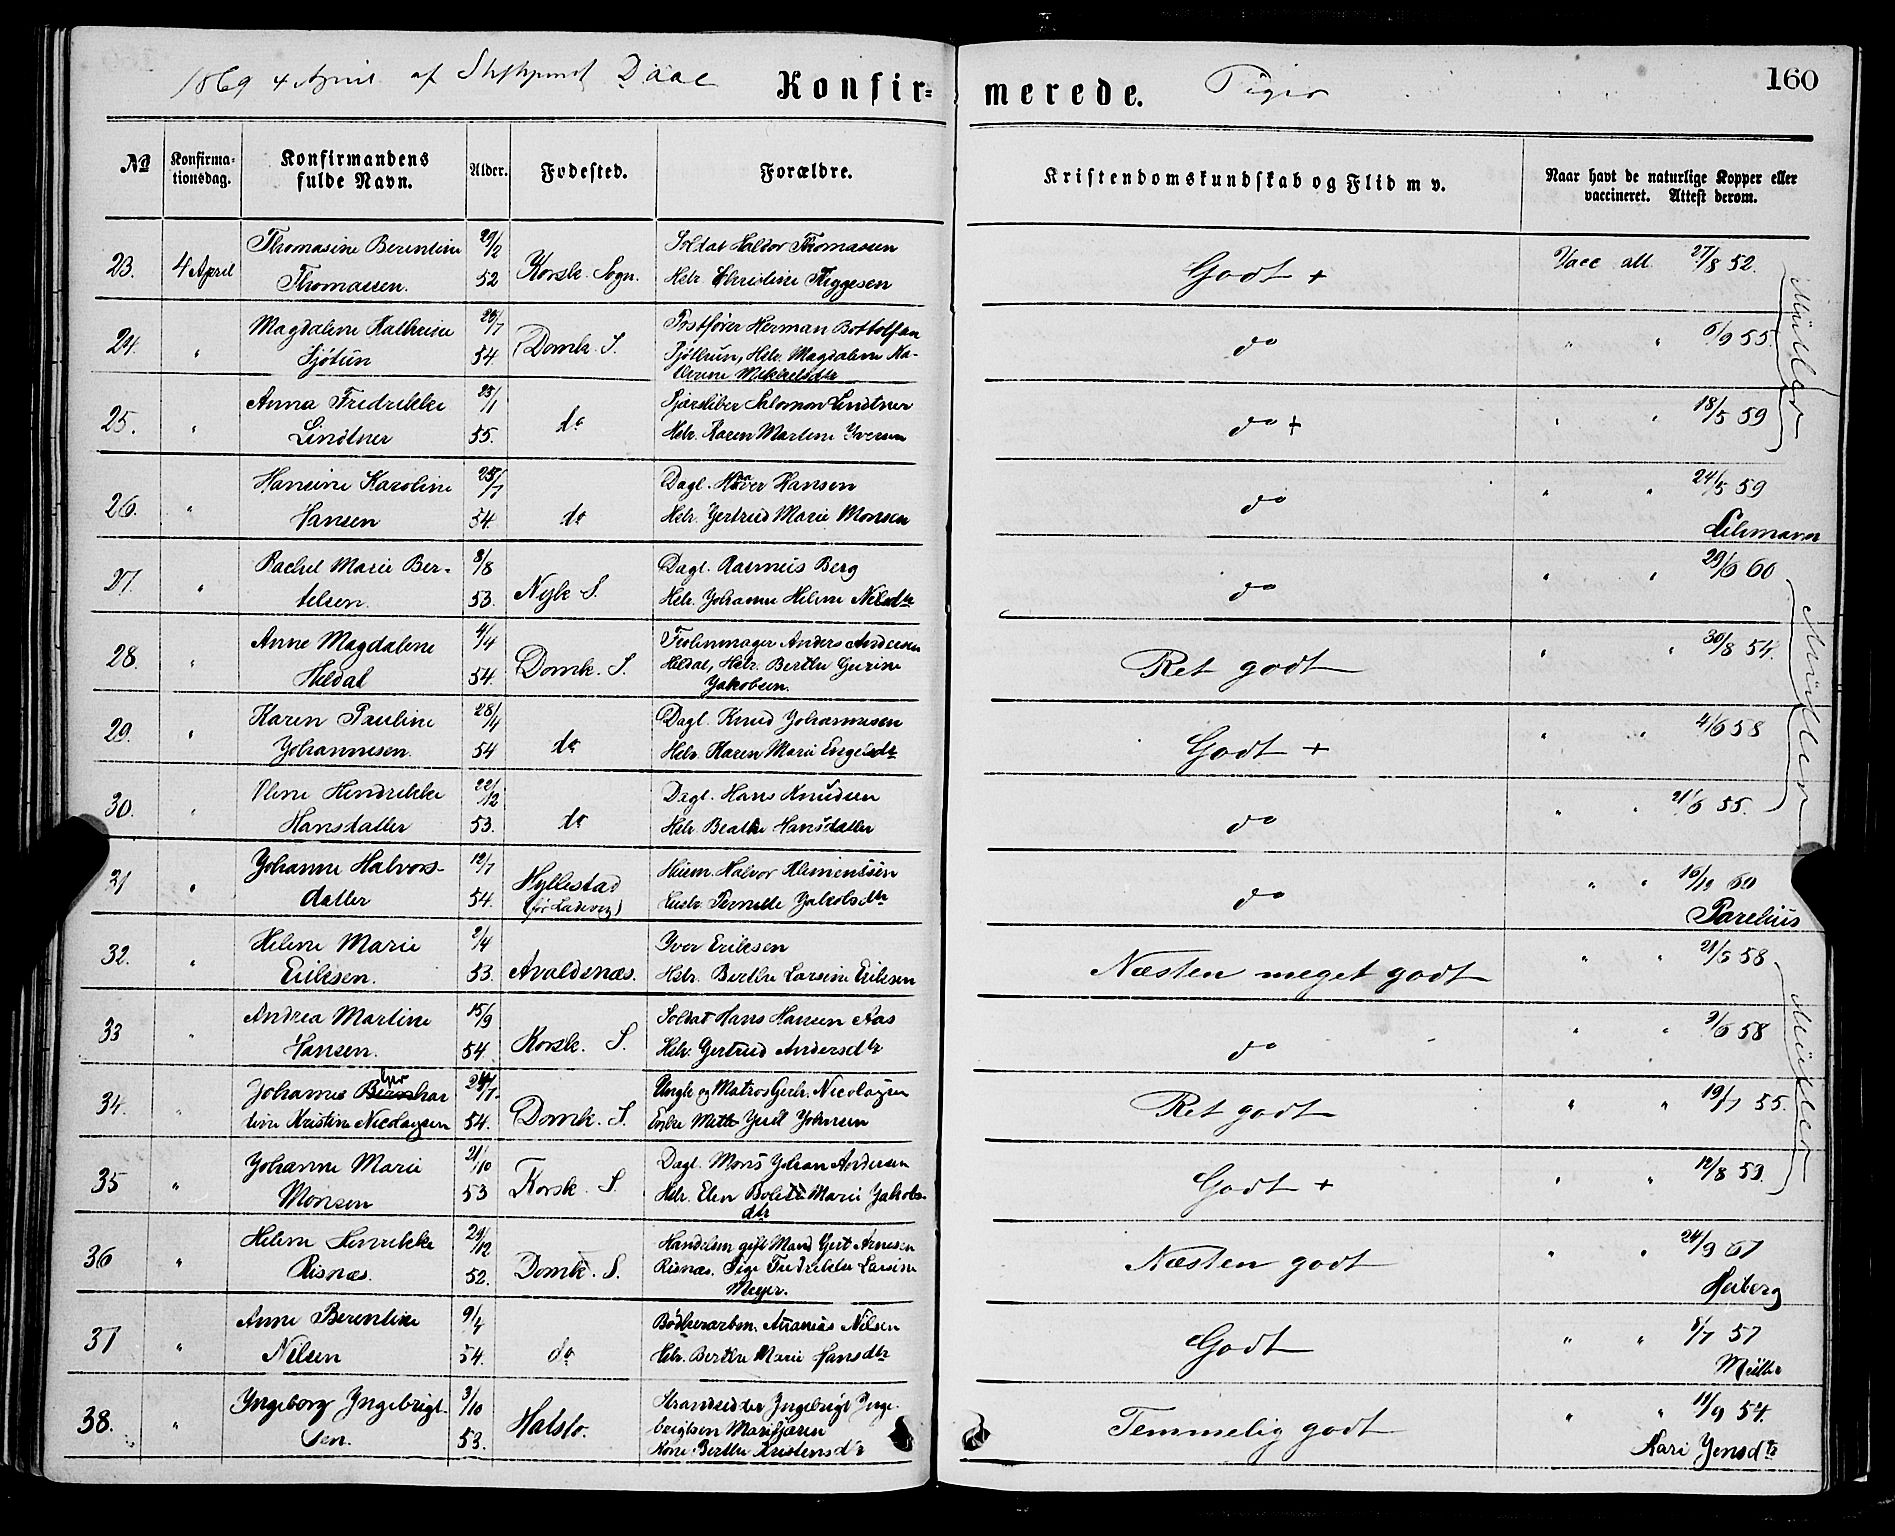 1869 4 April af Stiftsprovst Daae
Konfir= merede. Piger
160
No
Konfirma-
tionsdag.
Konfirmandens
fulde Navn.
Alder.
Fødested.
Forældre.
Kristendomskundskab og Flid m v.
Naar havt de naturlige Kopper eller
vaccineret. Attest derom.
23. 4 April Thomasine Berentine 29/2 Soldat Haldor Thomassen
Thomassen. 52 Korsk. Sogn. Hstr. Christine Figgesen Godt + Vacc att. 27/8 52.
Müller
24. " Magdalene Kathrine 29/7 Postfører Herman Bottolfsen
Sjøtun 54 Domk. S. Sjøttun, Hstr. Magdalene Ka-
thrine Mikkelsdtr do " " 6/9 55.
25. " Anna Fredrikke 23/1 Salomon Lindtner
Lindtner 55. do Hstr. Karen Martine Iversen do + " " 18/5 59
26. " Hansine Karoline 25/7 Dagl. Hansen
Hansen 54. do Hstr. Gertrud Marie Monsen do " " 24/5 59
Lehmann
27. " Rachel Marie Ber- 8/8 Dagl. Rasmus Berg
telsen. 53. Nyk S. Hstr. Johanne Helene Nilsdtr do " " 29/6 60
28. " Anne Magdalene 4/4 Anders Andersen
Heldal 54. Domk. S. Heldal, Hstr. Berthe Gurine
Jakobsen. Ret godt " " 30/8 54.
29. " Karen Pauline 28/4 Dagl. Knud Johannesen
Johannesen. 54 do Hstr. Karen Marie Engelsdtr Godt + " " 4/6 58
30. " Oline Hendrikke 22/12 Dagl. Hans Knudsen
Hansdatter 53. do Hstr. Beathe Hansdatter do " " 21/6 55.
31 " Johanne Halvors- 12/7 Huusm. Halvor Klemensen
datter 54. Hyllestad Hustr. Pernille Jakobsdtr do " " 16/10 60
Parelius
32. " Helene Marie 2/4 Iver Eriksen
Eriksen. 53 Avaldsnæs. Hstr. Berthe Larsine Eriksen Næsten meget godt " " 21/5 58
33 " Andrea Martine 15/9 Soldat Hans Hansen Aas
Hansen. 54. Korsk. S. Hstr. Gertrud Andersdtr do " " 3/6 58
34. " Johanne 24/7 Ungk. og Matros Gerh. Nicolaysen
tine Kristine Nicolaysen 54. Domk. S. Johnsen Ret godt " " 19/7 55.
35 " Johanne Marie 21/10 Dagl. Mons Johan Andersen
Monsen 53 Korsk. S. Hstr. Elen Bolette Marie Jakobs-
dtr Godt + " " 12/8 59.
36 " Helene Henrikke 29/12 Handelsm gift Mand Gert Arnesen
Risnæs. 52. Domk. S. Risnæs. Pige Fredrikke Larsine
Meyer. Næsten godt " " 24/9 67
Heiberg
37 " Anne Berentine 9/4 Bødkerarbm. Ananias Nilsen
Nilsen 54. do Hstr. Berthe Marie Hansdtr Godt " " 8/7 57
Müller
38. " Yngeborg Yngebrigt- 3/10 Strandsidder Yngebrigt Ynge-
sen. 53. Halslo. brigtsen Marifjæren
Kone Berthe Kristensdtr Temmelig godt " " 11/9 54.
Kari Jensdtr